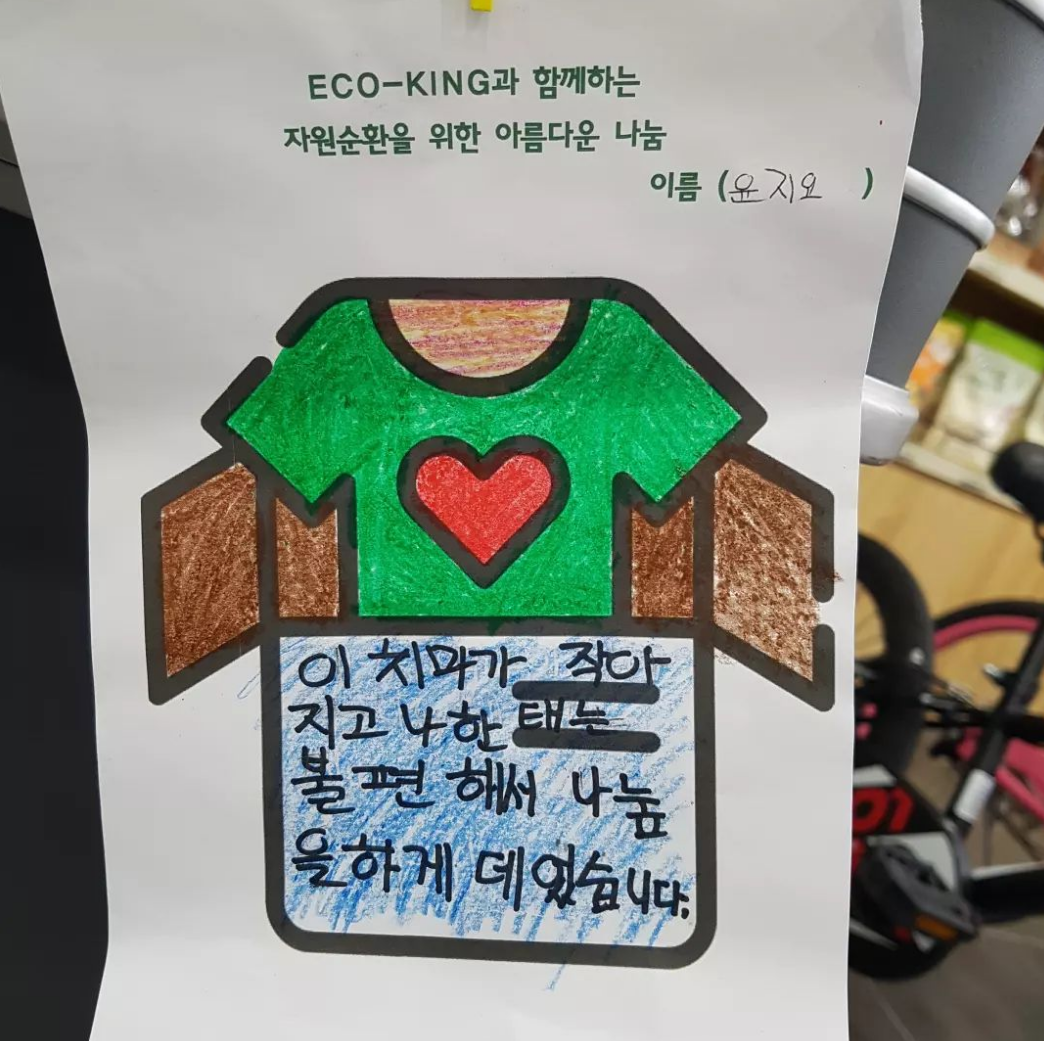 ECO-KING과 함께하는
자원순환을 위한 아름다운 나눔
이름 (윤지요 )
이 치마가 작아
지고 나한태는
불편해서 나눔
을하게 데었습니다.